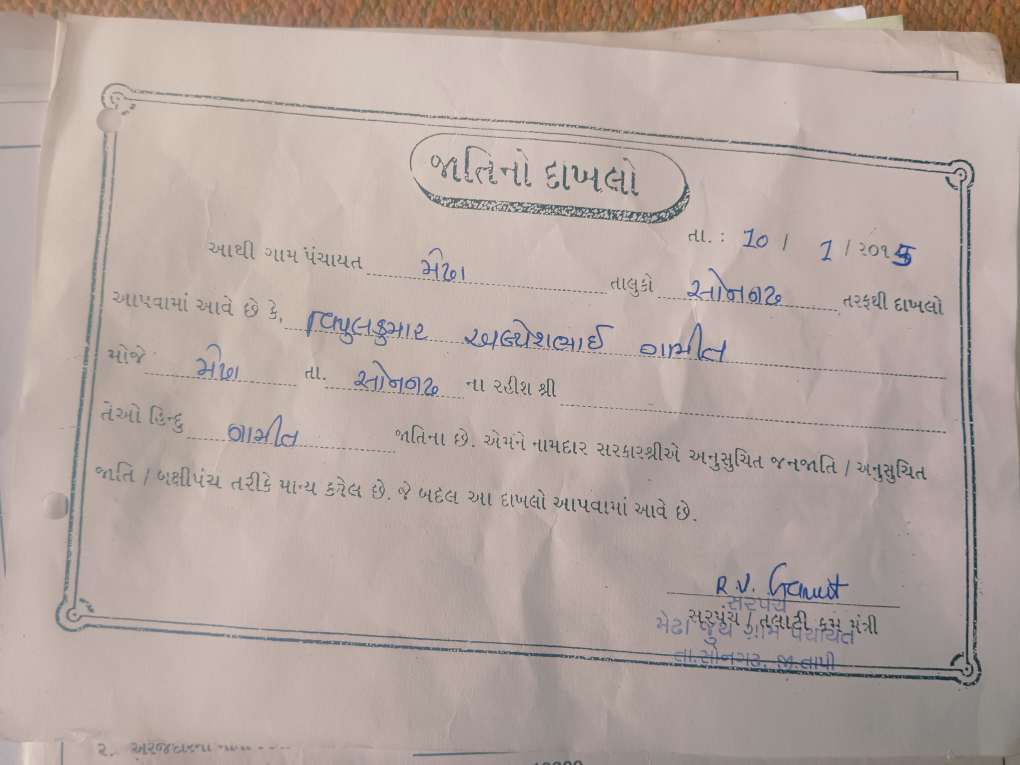 જાતિનો દાખલો
તા. : 10 / 1 / ૨૦૧5
આથી ગામ પંચાયત મેઢા તાલુકો સોનગઢ તરફથી દાખલો
આપવામાં આવે છે કે, વિપુલકુમાર અલ્પેશભાઈ ગામીત
મોજે મેઢા તા. સોનગઢ ના રહીશ શ્રી
તેઓ હિન્દુ ગામીત જાતિના છે. એમને નામદાર સરકારશ્રીએ અનુસુચિત જનજાતિ / અનુસુચિત
જાતિ / બક્ષીપંચ તરીકે માન્ય કરેલ છે. જે બદલ આ દાખલો આપવામાં આવે છે.
R.V. Gamit
સરપંચ
સરપંચ / તલાટી કમ મંત્રી
મેઢા જુથ ગ્રામ પંચાયત
તા.સોનગઢ, જી.તાપી
૨. અરજદારના